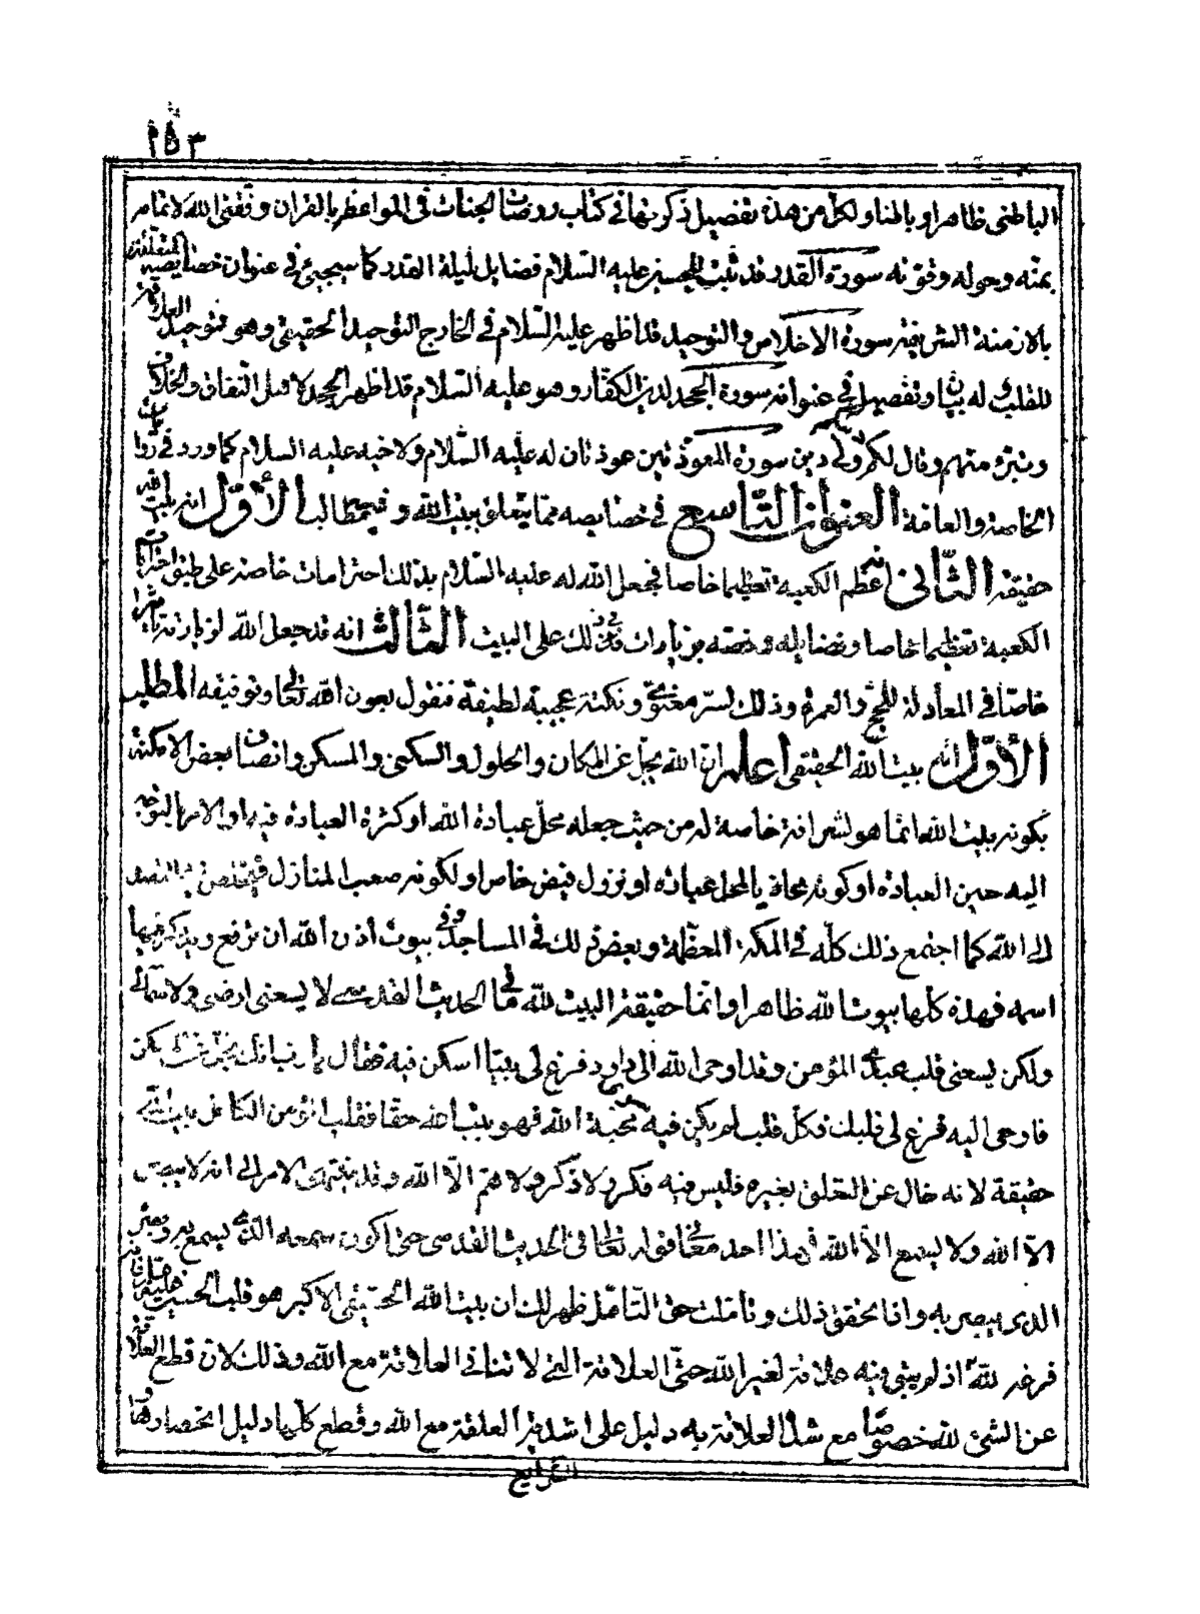 ١٥٣
الباطنى ظاهرا وباطنا ولكل من هذه تفصيل ذكرتها فى كتاب روضات الجنات فى المواعظ بالقران وفقنى الله لاتمامه
بمنّه وحوله وقوته سورة القدر قد ثبت للحسين عليه السّلام فضايل ليلة القدر كما سيجيئ فى عنوان خصايصه المتعلقة
بالازمنة الشريفة سورة الاخلاص والتوحيد قد اظهر عليه السّلام فى الخارج التوحيد الحقيقى وهو توحيد العلاقة
للقلب له بيان وتفصيل فى عنوانه سورة الجحد لدين الكفار وهو عليه السّلام قد اظهر الجحد لاهل النفاق والخلاف
وتبرء منهم وقال لكم دينكم ولى دين سورة المعوّذتين عوذتان له عليه السّلام ولاخيه عليه السلام كما ورد فى روايات
الخاصة والعامة العنوان التّاسع فى خصايصه مما يتعلق ببيت الله وفيه مطالب الأوّل انه بيت الله
حقيقة الثّانى انه عظم الكعبة تعظيما خاصا فجعل الله له عليه السلام بذلك احترامات خاصة على طبق احترامات
الكعبة تعظيما خاصا وفضايله من زيارات ذلك على البيت الثّالث انه قد جعل الله لزيارته تاثيرا
خاصّا فى المعادلة للحج والعمرة وذلك لسرّ معنوىّ ونكتة عجيبة لطيفة فنقول بعون الله تعالى وتوفيقه المطلب
الأوّل انّه بيت الله الحقيقى اعلم ان الله يجل عن المكان والحلول والسكنى والمسكن واتصاف بعض الامكنة
بكونه بيت الله انما هو لشرافة خاصة له من حيث جعله محلّ عبادة الله او كثرة العبادة فيه او الامر بالتوجه
اليه حين العبادة او كونه محاذيا لمحل عباده او نزول فيض خاص او لكونه صعب المنازل فيخلص بالقصد
الى الله كما اجتمع ذلك كلّه فى المكة المعظّمة وبعض ذلك فى المساجد وفى بيوت اذن الله ان ترفع ويذكر فيها
اسمه فهذه كلها بيوت الله ظاهرا وانّما حقيقة البيت لله ما فى الحديث القدسى لا يسعنى ارضى ولا سمائى
ولكن يسعنى قلب عبدى المؤمن وقد اوحى الله الى داود فرغ لى بيتا اسكن فيه فقال يا رب انك تجل عن
فاوحى اليه فرغ لى قلبك فكل قلب لم يكن فيه غير محبة الله فهو بيت الله حقا فقلب المؤمن الكامل بيت الله
حقيقة لانه خال عن التعلق بغيره فليس فيه فكر ولا ذكر ولا همّ الّا الله وقد ينتهى الامر الى انه لا يبصر
الّا الله ولا يسمع الا الله فهذا احد معانى قوله تعالى فى الحديث القدسى حتى اكون سمعه الذى يسمع به وبصره
الذى يبصر به واذا تحقق ذلك وتاملت حق التّامّل ظهر لك ان بيت الله الحقيقى الاكبر هو قلب الحسين عليه السلام
فرغه لله اذ لم يبق فيه علاقة لغير الله حتّى العلاقة التى لا تنافى العلاقة مع الله وذلك لان قطع العلاقة
عن الشئ لله خصوصا مع شدّة العلاقة به دليل على اشدّية العلقة مع الله وقطع كلّها دليل انحصارها